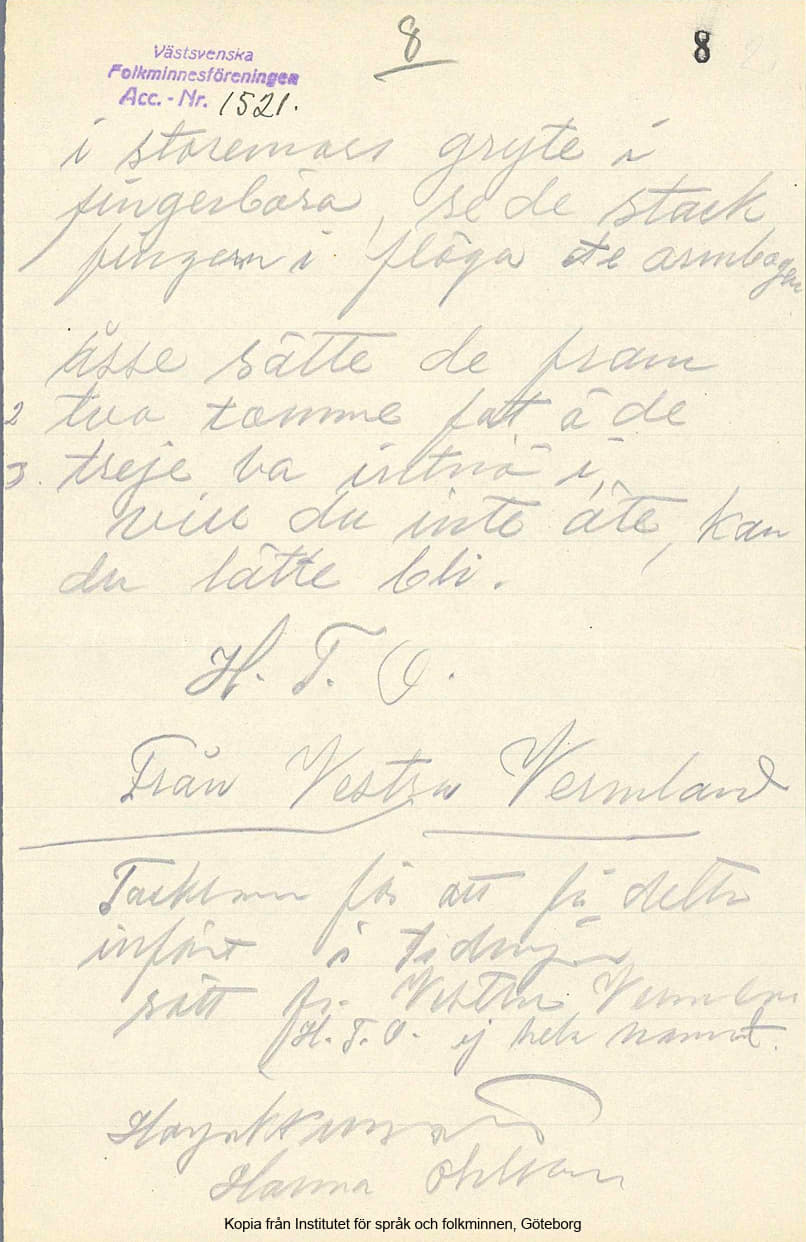 8
8
Västsvenska
Folkminnesföreningen
Acc. - Nr. 1521.
i storemors gryte i
fingerbåra, se de stack
fingern i flöga te armbogen
åsse sätte de fram
2 två tomme fatt å de
3. treje va intnö i,
vill du inte äte, kan
du låtte bli.
H. T. O.
Från Vestra Vermland
Tacksam för att få detta
infört i
sätt fr. Vestra
H. T. O. ej hela namnet.
Hanna Ohlson
Kopia från Institutet för språk och folkminnen, Göteborg